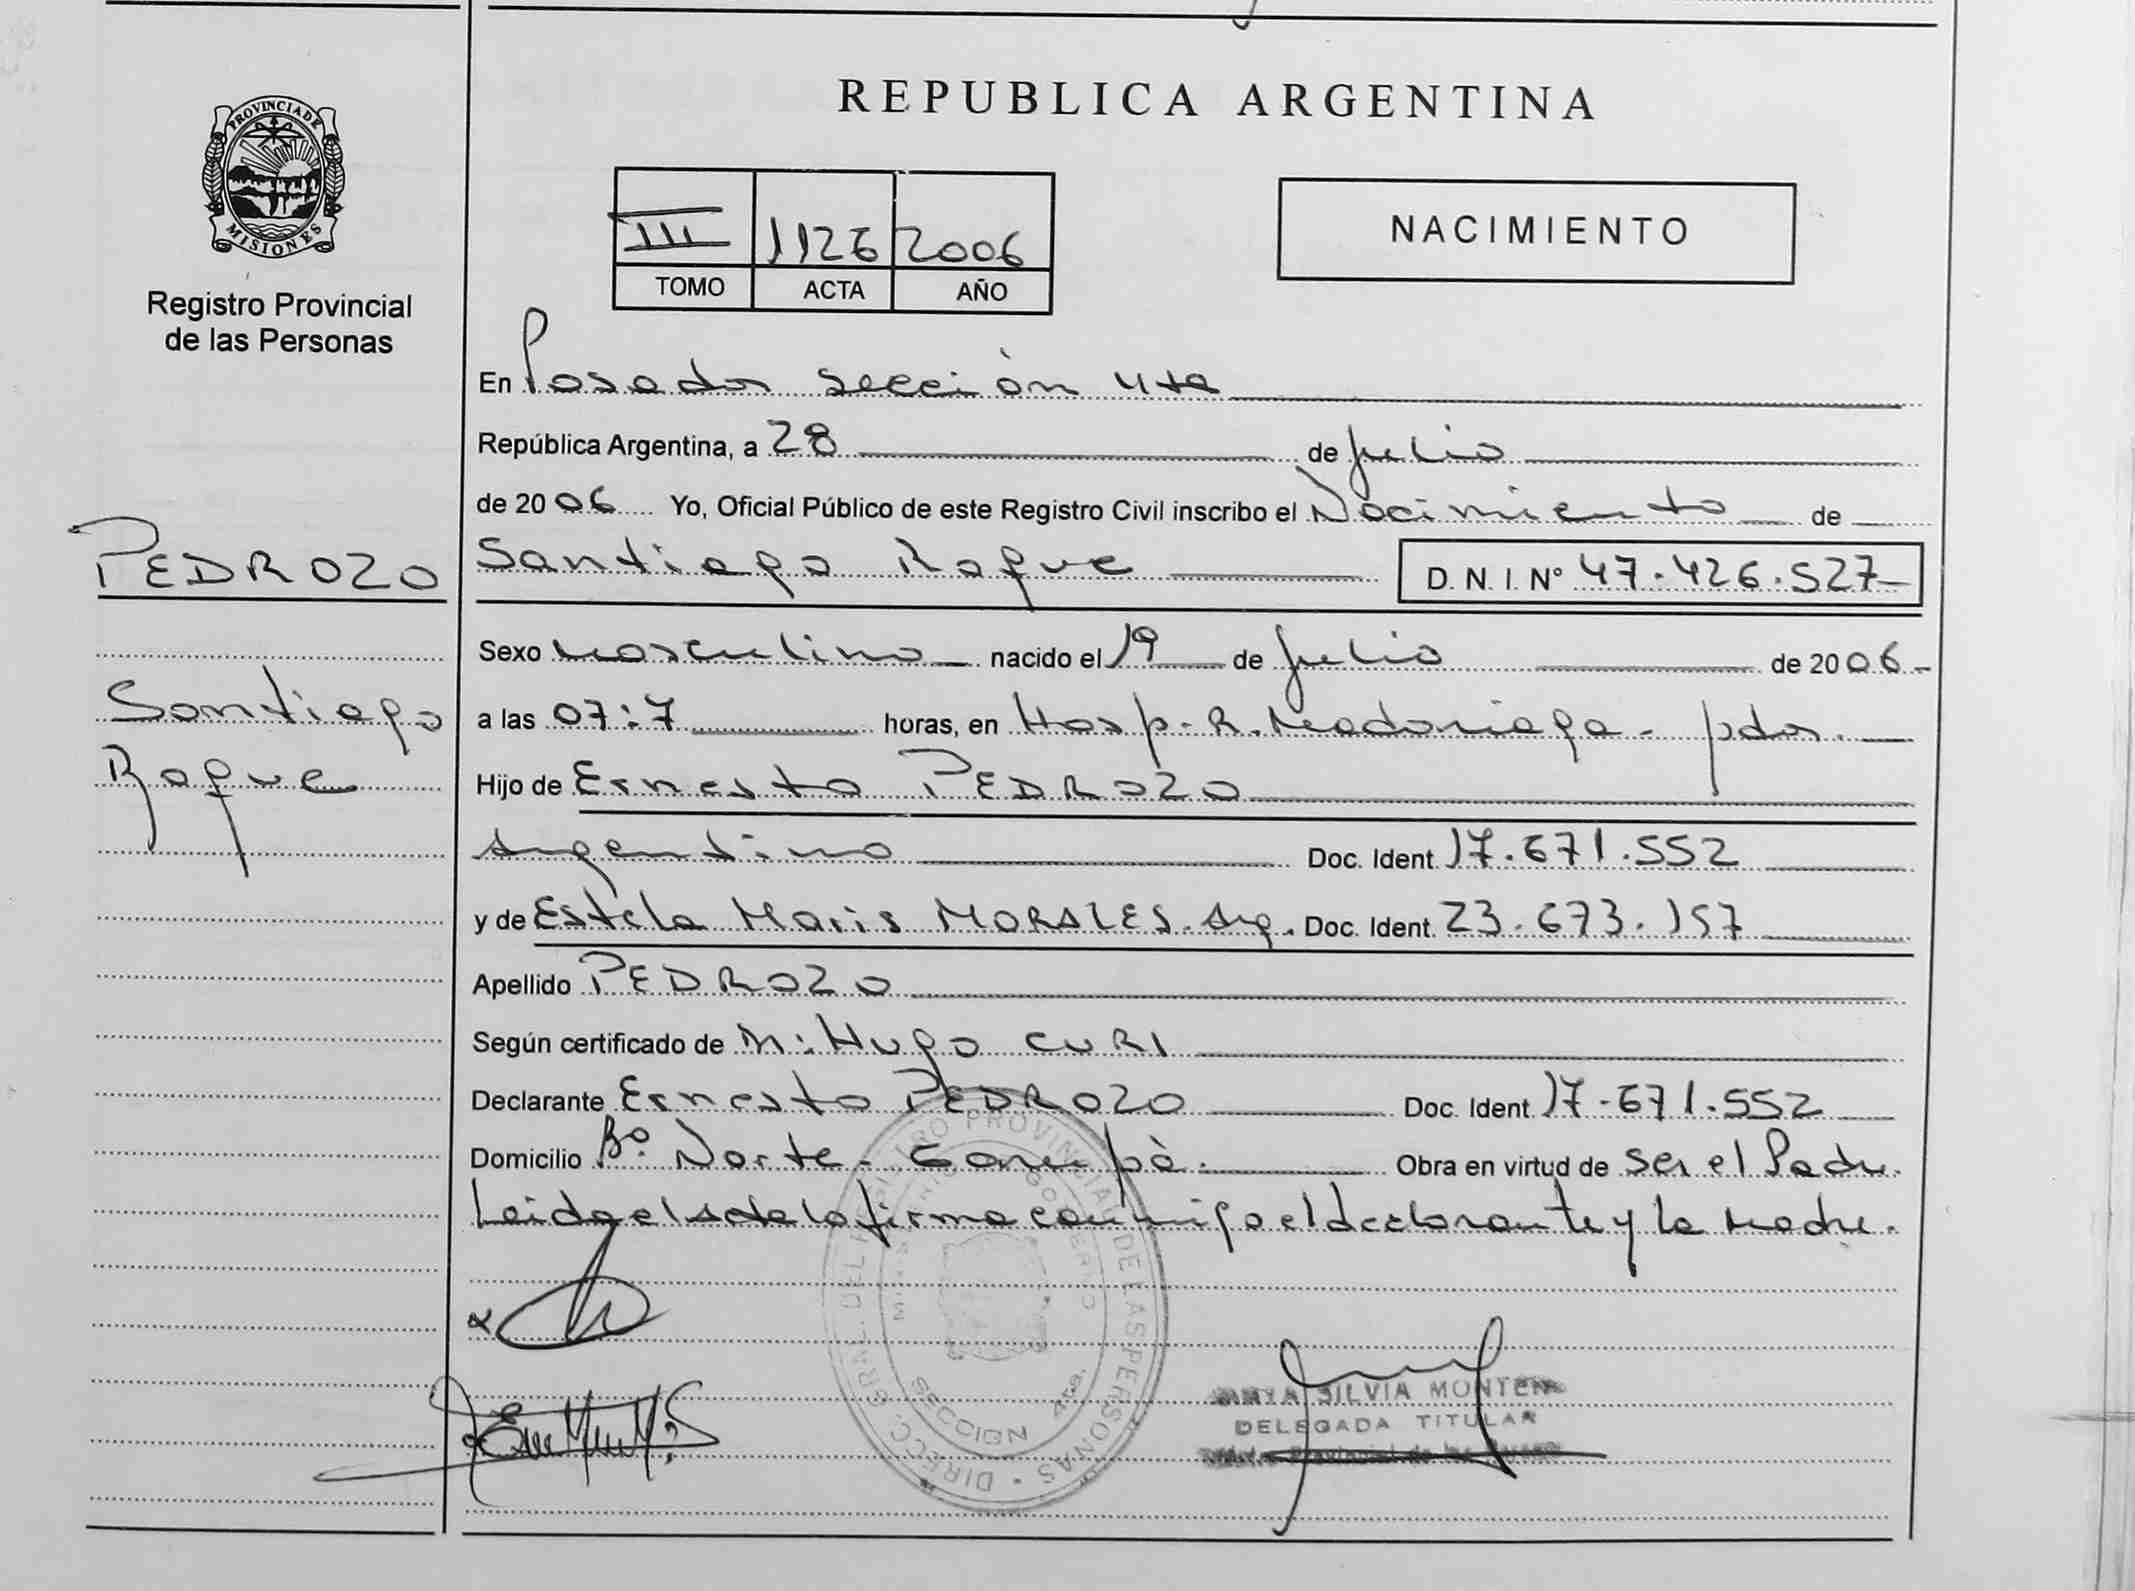 PROVINCIA DE
MISIONES
Registro Provincial
de las Personas
PEDROZO
Santiago
Roque
REPUBLICA ARGENTINA
III 1126 2006
TOMO ACTA AÑO
NACIMIENTO
En Posadas sección 4ta
República Argentina, a 28 de julio
de 2006 Yo, Oficial Público de este Registro Civil inscribo el Nacimiento de
Santiago Roque D. N. I. Nº 47.426.527
Sexo Masculino nacido el 19 de julio de 2006.-
a las 07:7 horas, en Hosp. R. Madariaga - pdas.
Hijo de Ernesto PEDROZO
Argentino Doc. Ident. 17.671.552
y de Estela Maris MORALES. Arg. Doc. Ident. 23.673.157
Apellido PEDROZO
Según certificado de M: Hugo CURI
Declarante Ernesto PEDROZO Doc. Ident. 17.671.552
Domicilio Bº. Norte - Garupá. Obra en virtud de ser el Padre.
Leida el acta la firma conmigo el declarante y la Madre.
DIRECC. GRAL. DEL REGISTRO PROVINCIAL DE LAS PERSONAS
SECCION 4ta.
SILVIA
DELEGADA TITULAR
Provincial de las